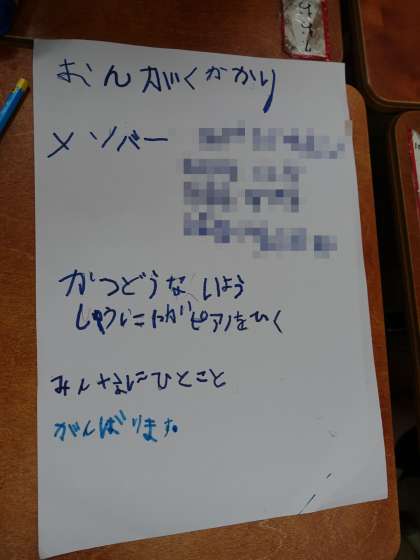 おんがくかかり
メンバー
かつどうないよう
しゅうに1かいピアノをひく
みんなにひとこと
がんばります。